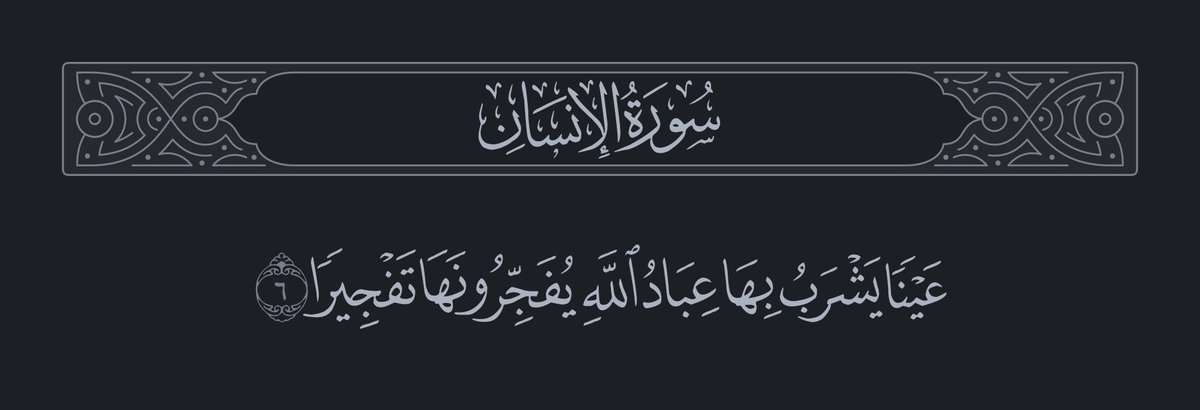 سُورَةُ الْإِنسَانِ
عَيْنًا يَشْرَبُ بِهَا عِبَادُ ٱللَّهِ يُفَجِّرُونَهَا تَفْجِيرًا ٦